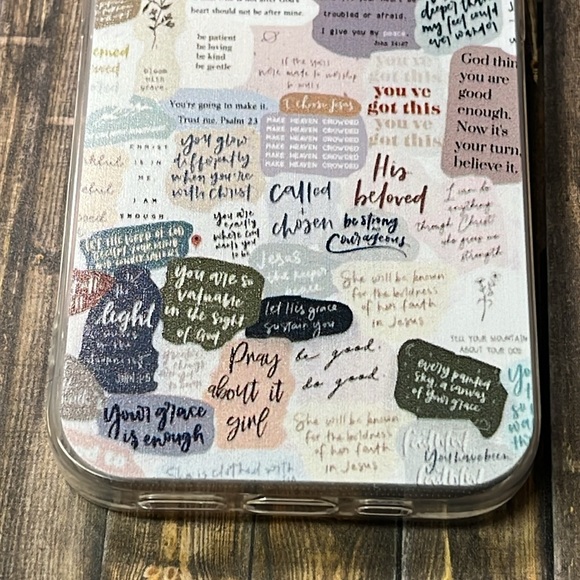 heart should not be after mine.
troubled or afraid.
I give you my peace.
John 14:27
deeper than
my feet could
ever wander
be patient
be loving
be kind
be gentle
bloom
with
grace.
if the stars
were made to worship
so will I
you've
got this
you've
got this
you've
got this
God thin
you are
good
enough.
Now it's
your turn,
believe it.
You're going to make it.
Trust me. Psalm 23
I choose Jesus
MAKE HEAVEN CROWDED
MAKE HEAVEN CROWDED
MAKE HEAVEN CROWDED
MAKE HEAVEN CROWDED
MAKE HEAVEN CROWDED
CHRIST
IS IN
ME,
I AM
ENOUGH
you glow
differently
when you're
with Christ
His
beloved
called
+
chosen
be strong
and
Courageous
I can do
anything
through Christ
who gives me
strength
you are
exactly
where God
wants you
to be
Jesus
the
peace
You are so
valuable
in the sight
of God
She will be known
for the boldness
of her faith
in Jesus
light
let His grace
sustain you
TELL YOUR MOUNTAIN
ABOUT YOUR GOD
Pray
about it
girl
be good.
do good.
every painted
sky, a canvas
of your grace
Your grace
is enough
She will be known
for the boldness
of her faith
in Jesus
faithful
You have been
faithful
She is clothed with